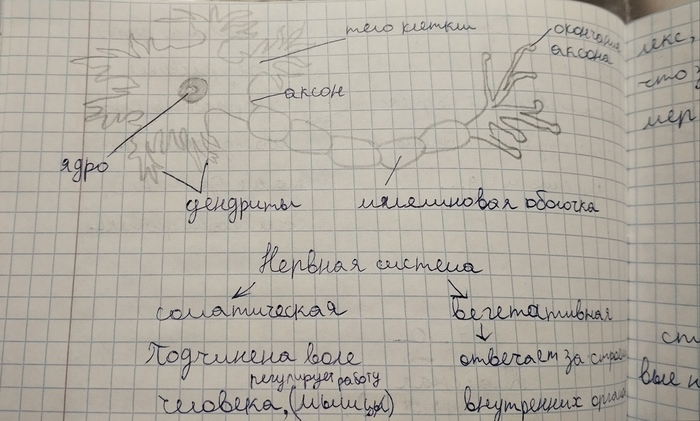 тело клетки
окончания
аксона
аксон
ядро
дендриты
миелиновая оболочка
Нервная система
соматическая
вегетативная
Подчинена воле
отвечает за
регулирует работу
человека, (мышцы)
внутренних
лекс,
что
мер
ст
вые